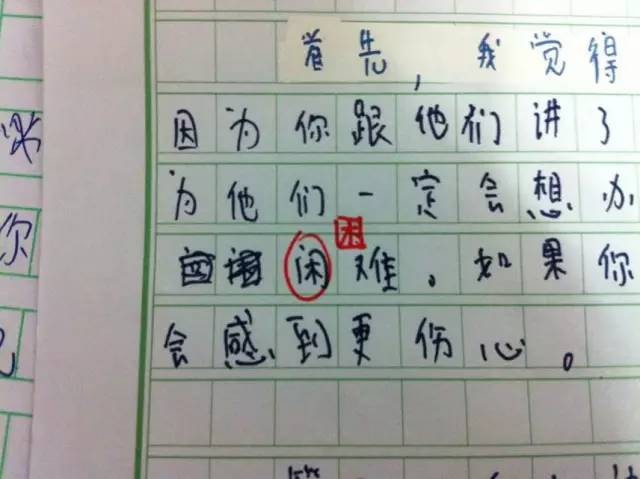 首先,我觉得
因为你跟他们讲了
为他们一定会想办
困
闲难。如果你
会感到更伤心。
你